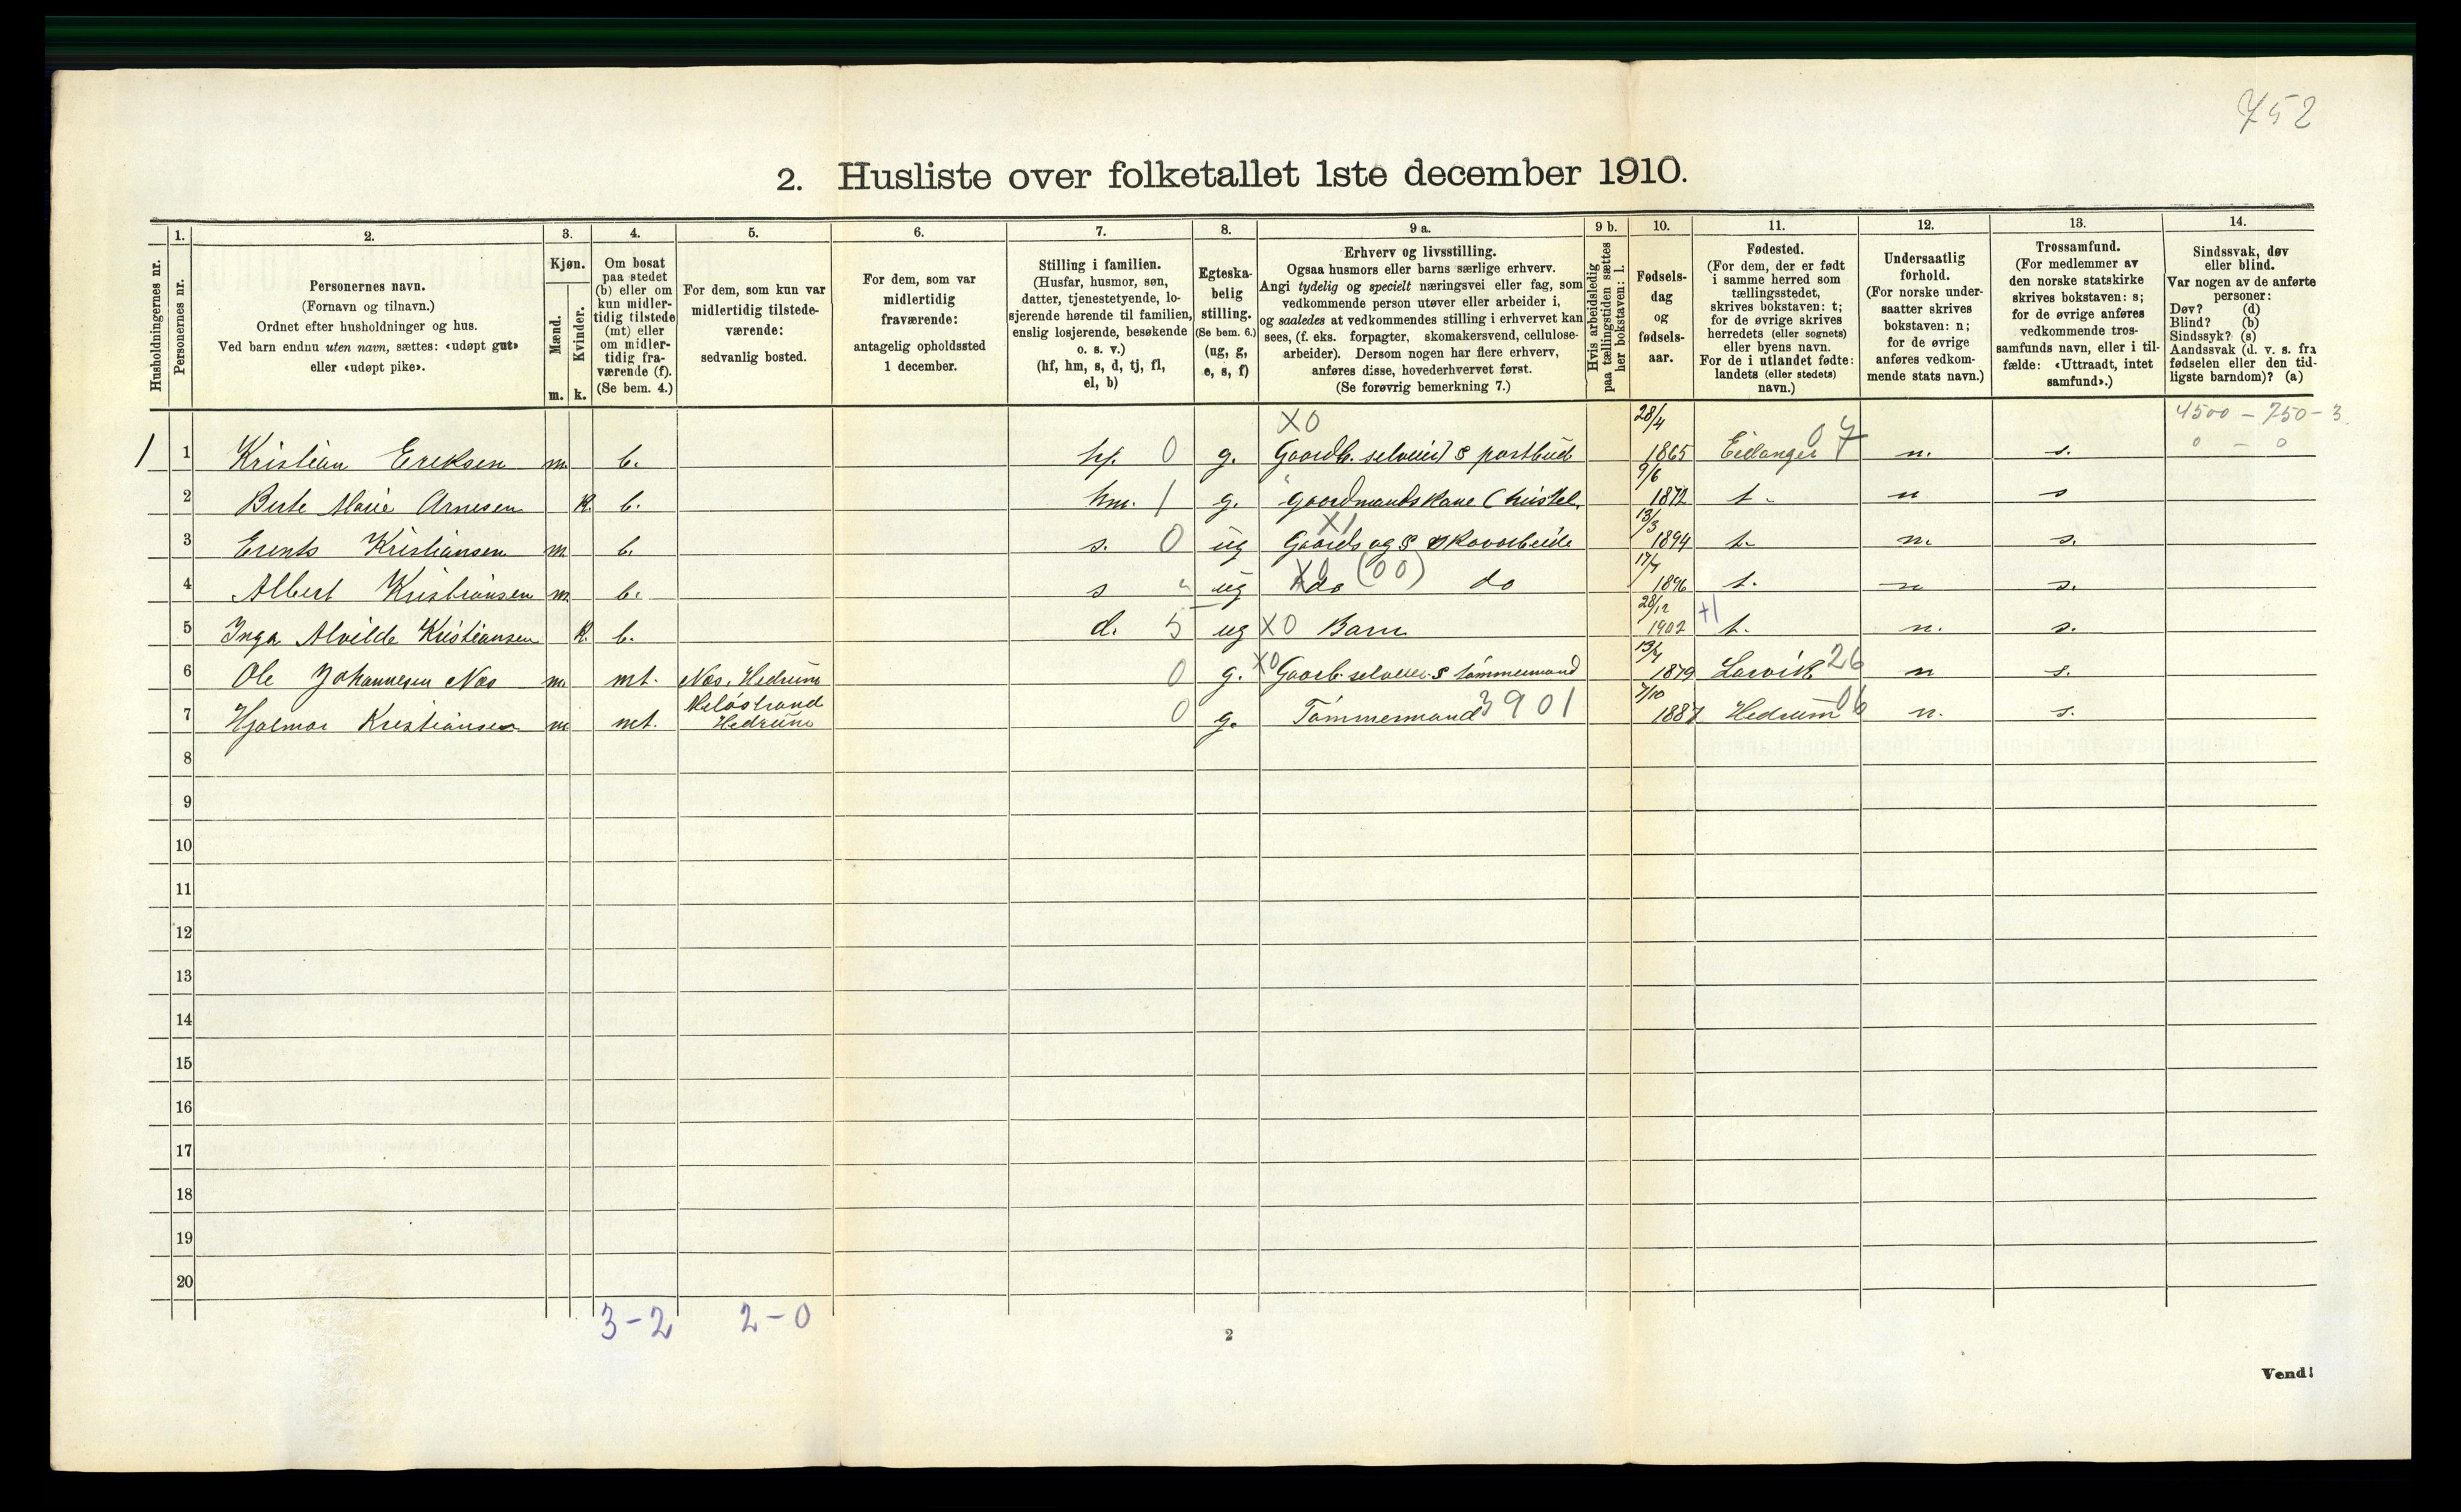 752
2. Husliste over folketallet 1ste december 1910.
Husholdningernes nr.
1.
Personernes nr.
2.
Personernes navn.
(Fornavn og tilnavn.)
Ordnet efter husholdninger og hus.
Ved barn endnu uten navn, sættes: «udøpt gut»
eller «udøpt pike».
3.
Kjøn.
Mænd.
Kvinder.
m. k.
4.
Om bosat
paa stedet
(b) eller om
kun midler-
tidig tilstede
(mt) eller
om midler-
tidig fra-
værende (f).
(Se bem. 4.)
5.
For dem, som kun var
midlertidig tilstede-
værende:
sedvanlig bosted.
6.
For dem, som var
midlertidig
fraværende:
antagelig opholdssted
1 december.
7.
Stilling i familien.
(Husfar, husmor, søn,
datter, tjenestetyende, lo-
sjerende hørende til familien,
enslig losjerende, besøkende
o. s. v.)
(hf, hm, s, d, tj, fl,
el, b)
8.
Egteska-
belig
stilling.
(Se bem. 6.)
(ug, g,
e, s, f)
9 a.
Erhverv og livsstilling.
Ogsaa husmors eller barns særlige erhverv.
Angi tydelig og specielt næringsvei eller fag, som
vedkommende person utøver eller arbeider i,
og saaledes at vedkommendes stilling i erhvervet kan
sees, (f. eks. forpagter, skomakersvend, cellulose-
arbeider). Dersom nogen har flere erhverv,
anføres disse, hovederhvervet først.
(Se forøvrig bemerkning 7.)
9 b.
Hvis arbeidsledig
paa tællingstiden sættes
her bokstaven: l.
10.
Fødsels-
dag
og
fødsels-
aar.
11.
Fødested.
(For dem, der er født
i samme herred som
tællingsstedet,
skrives bokstaven: t;
for de øvrige skrives
herredets (eller sognets)
eller byens navn.
For de i utlandet fødte:
landets (eller stedets)
navn.)
12.
Undersaatlig
forhold.
(For norske under-
saatter skrives
bokstaven: n;
for de øvrige
anføres vedkom-
mende stats navn.)
13.
Trossamfund.
(For medlemmer av
den norske statskirke
skrives bokstaven: s;
for de øvrige anføres
vedkommende tros-
samfunds navn, eller i til-
fælde: «Uttraadt, intet
samfund».)
14.
Sindssvak, døv
eller blind.
Var nogen av de anførte
personer:
Døv? (d)
Blind? (b)
Sindssyk? (s)
Aandssvak (d. v. s. fra
fødselen eller den tid-
ligste barndom)? (a)
XO 28/4 4500 – 750 – 3
1 1 Kristian Eriksen m. b. hf. 0 g. Gaardb. selveier S postbud 1865 Eidanger 07 n. s. 0 – 0
2 Berte Marie Arnesen K. b. hm. 1 g. Gaardmandskone (huistel. 9/6 1872 t. n s
3 Erents Kristiansen m b. s. 0 ug X1 Gaards og S skovarbeide 13/3 1894 t. n. s.
4 Albert Kristiansen m. b. s " ug X0 do (00) do 17/7 1896 t. n s.
5 Inga Alvilde Kristiansen K. b. d. 5 ug XO Barn 28/12 1902 +1 t. n. s.
6 Ole Johannesen Næs m. mt. Næs, Hedrum 0 g. XO Gaarb. selveier S tømmermand 13/4 1879 Larvik 26 n s.
7 Hjalmar Kristiansen m mt. Meløstrand Hedrum 0 g. Tømmermand 3901 7/10 1887 Hedrum 06 n. s.
8
9
10
11
12
13
14
15
16
17
18
19
20
3–2 2–0
2
Vend!